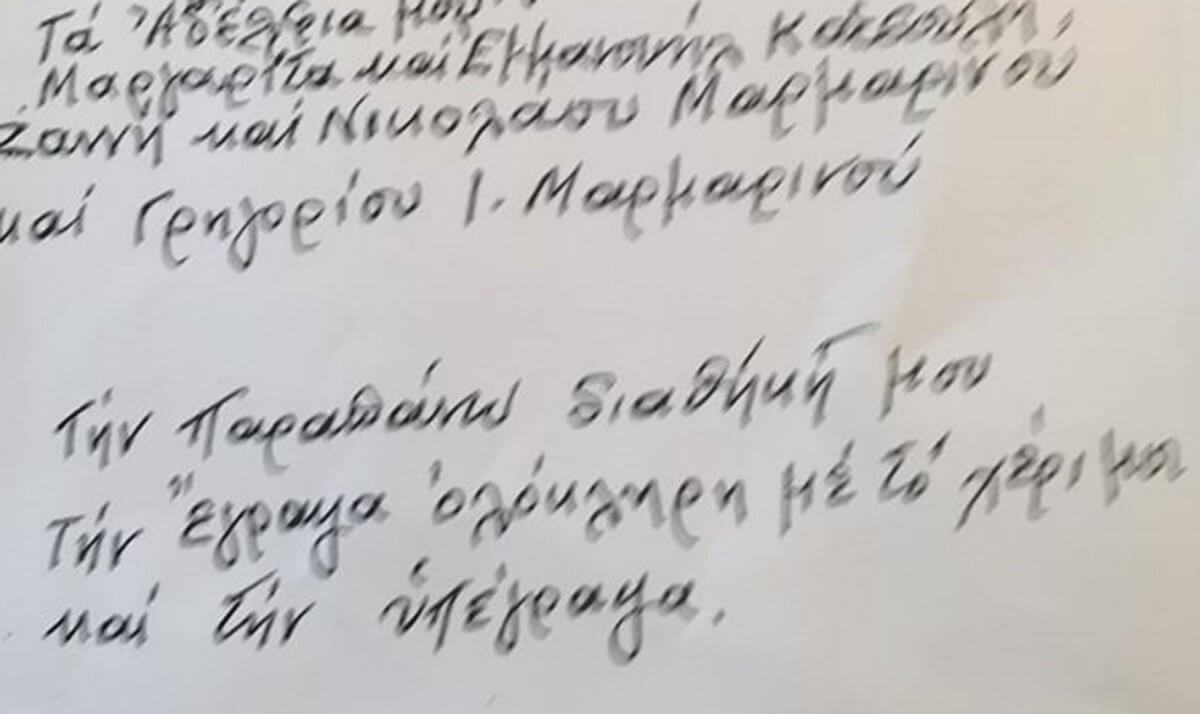 Τά Ἀδέλφια μου
Μαργαρίτα καί Ἐμμανουήλ
Ζαννή καί Νικολάου Μαρμαρινού
καί Γρηγορίου Ι. Μαρμαρινού
Τήν παραπάνω διαθήκή μου
Τήν ἔγραψα ὁλόκληρη μέ τό χέρι μου
καί τήν ὑπέγραψα.